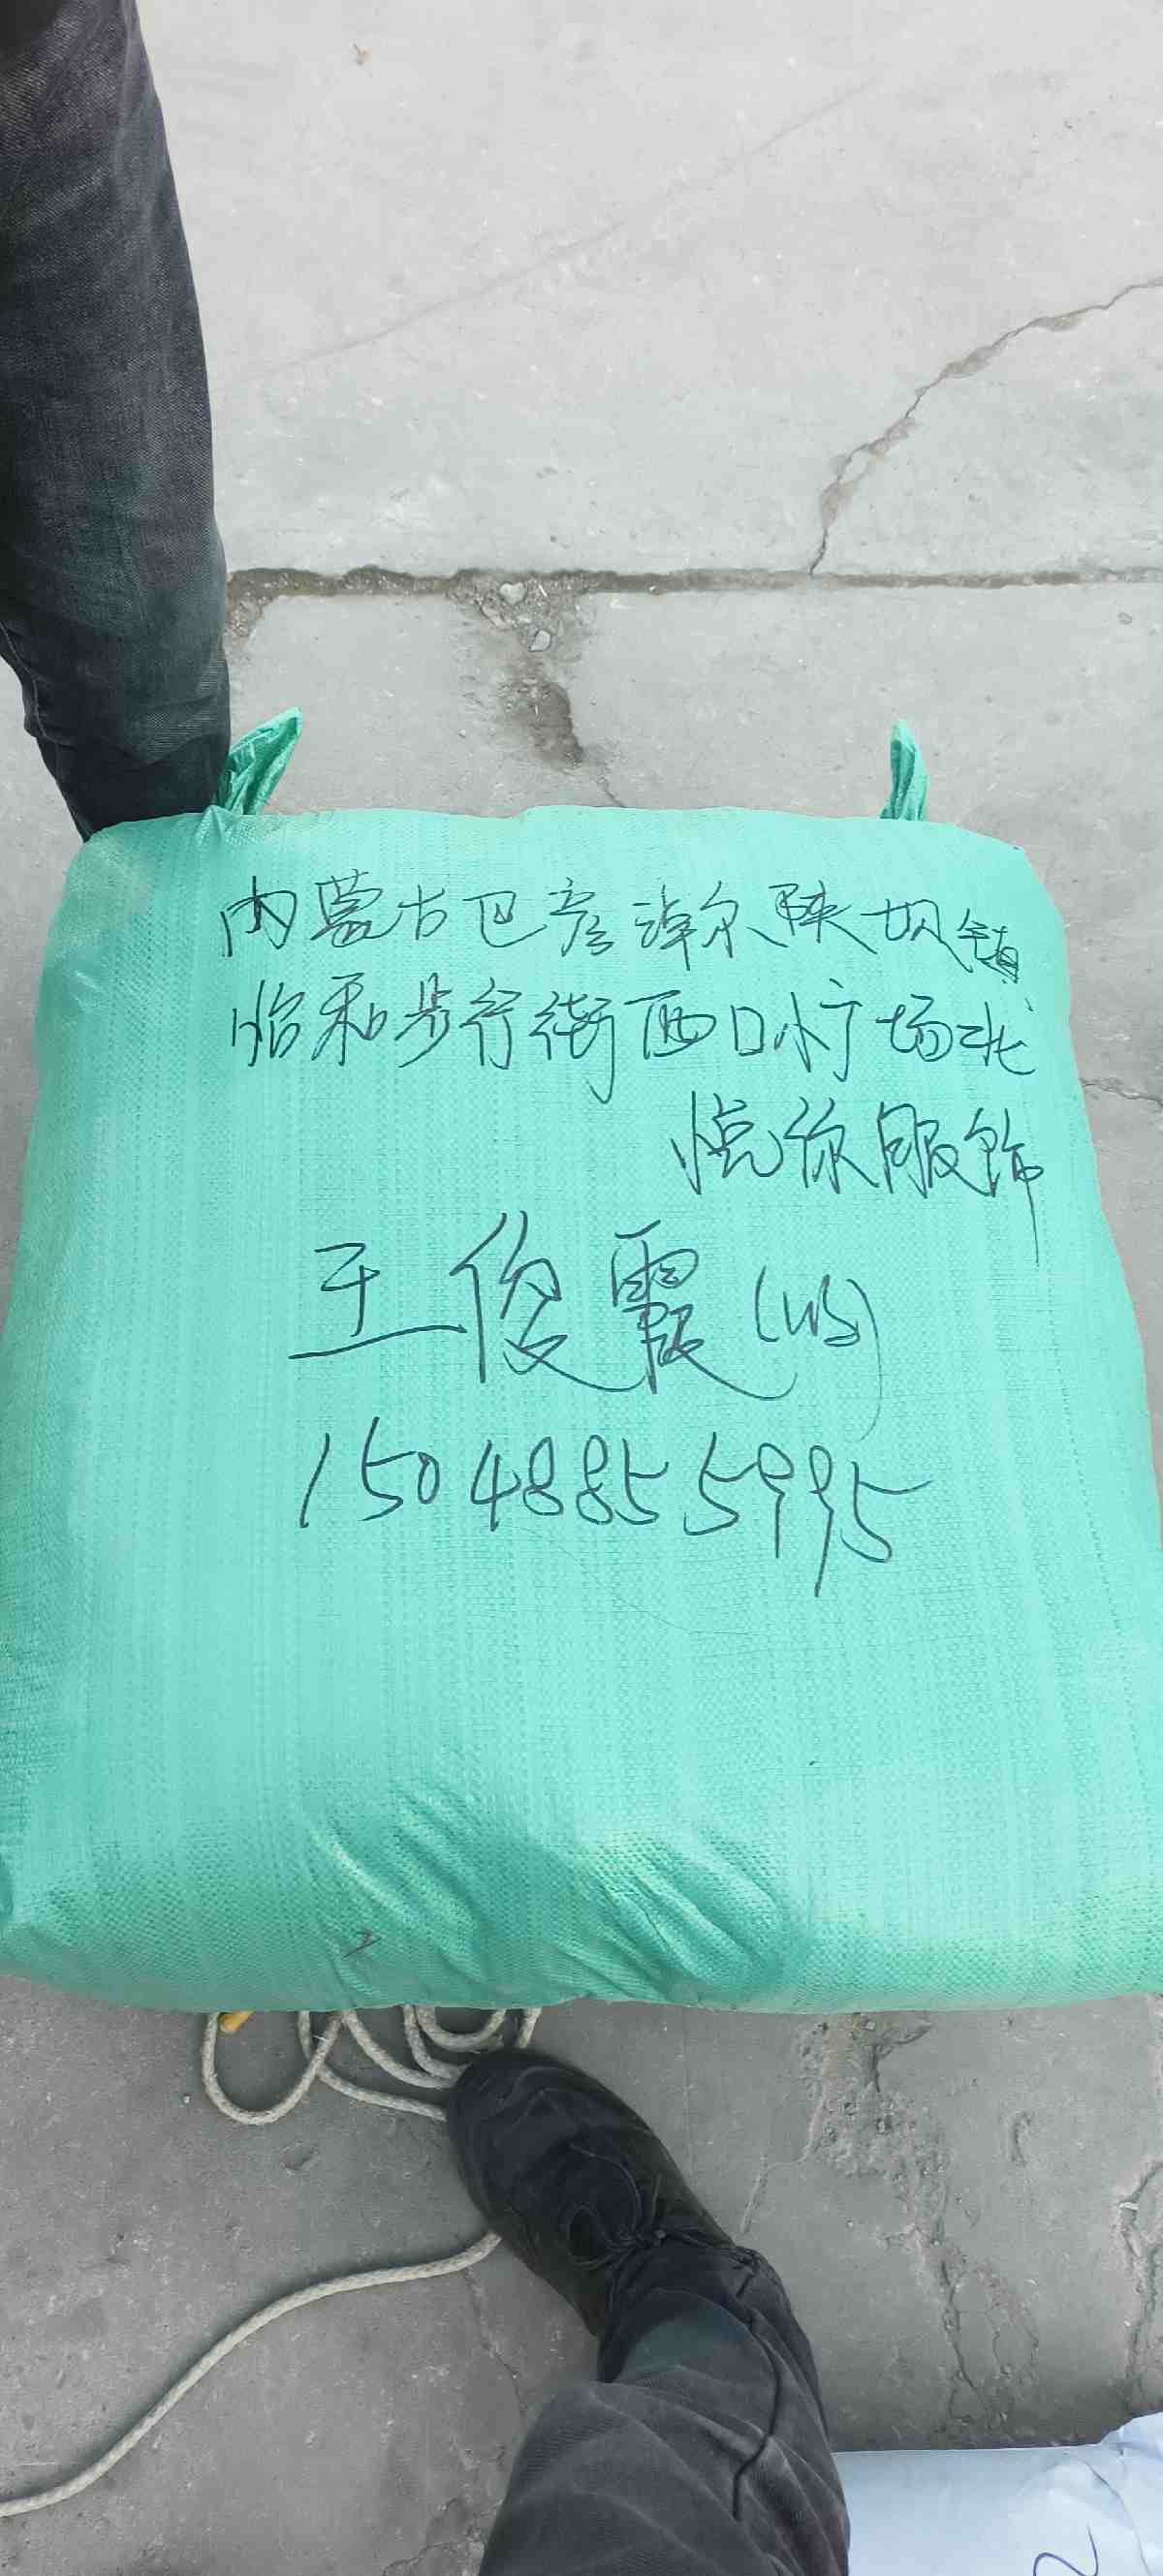 内蒙古巴彦淖尔陕坝镇
怡和步行街西口小广场北
悦你服饰
王俊霞(收)
15048855995
2